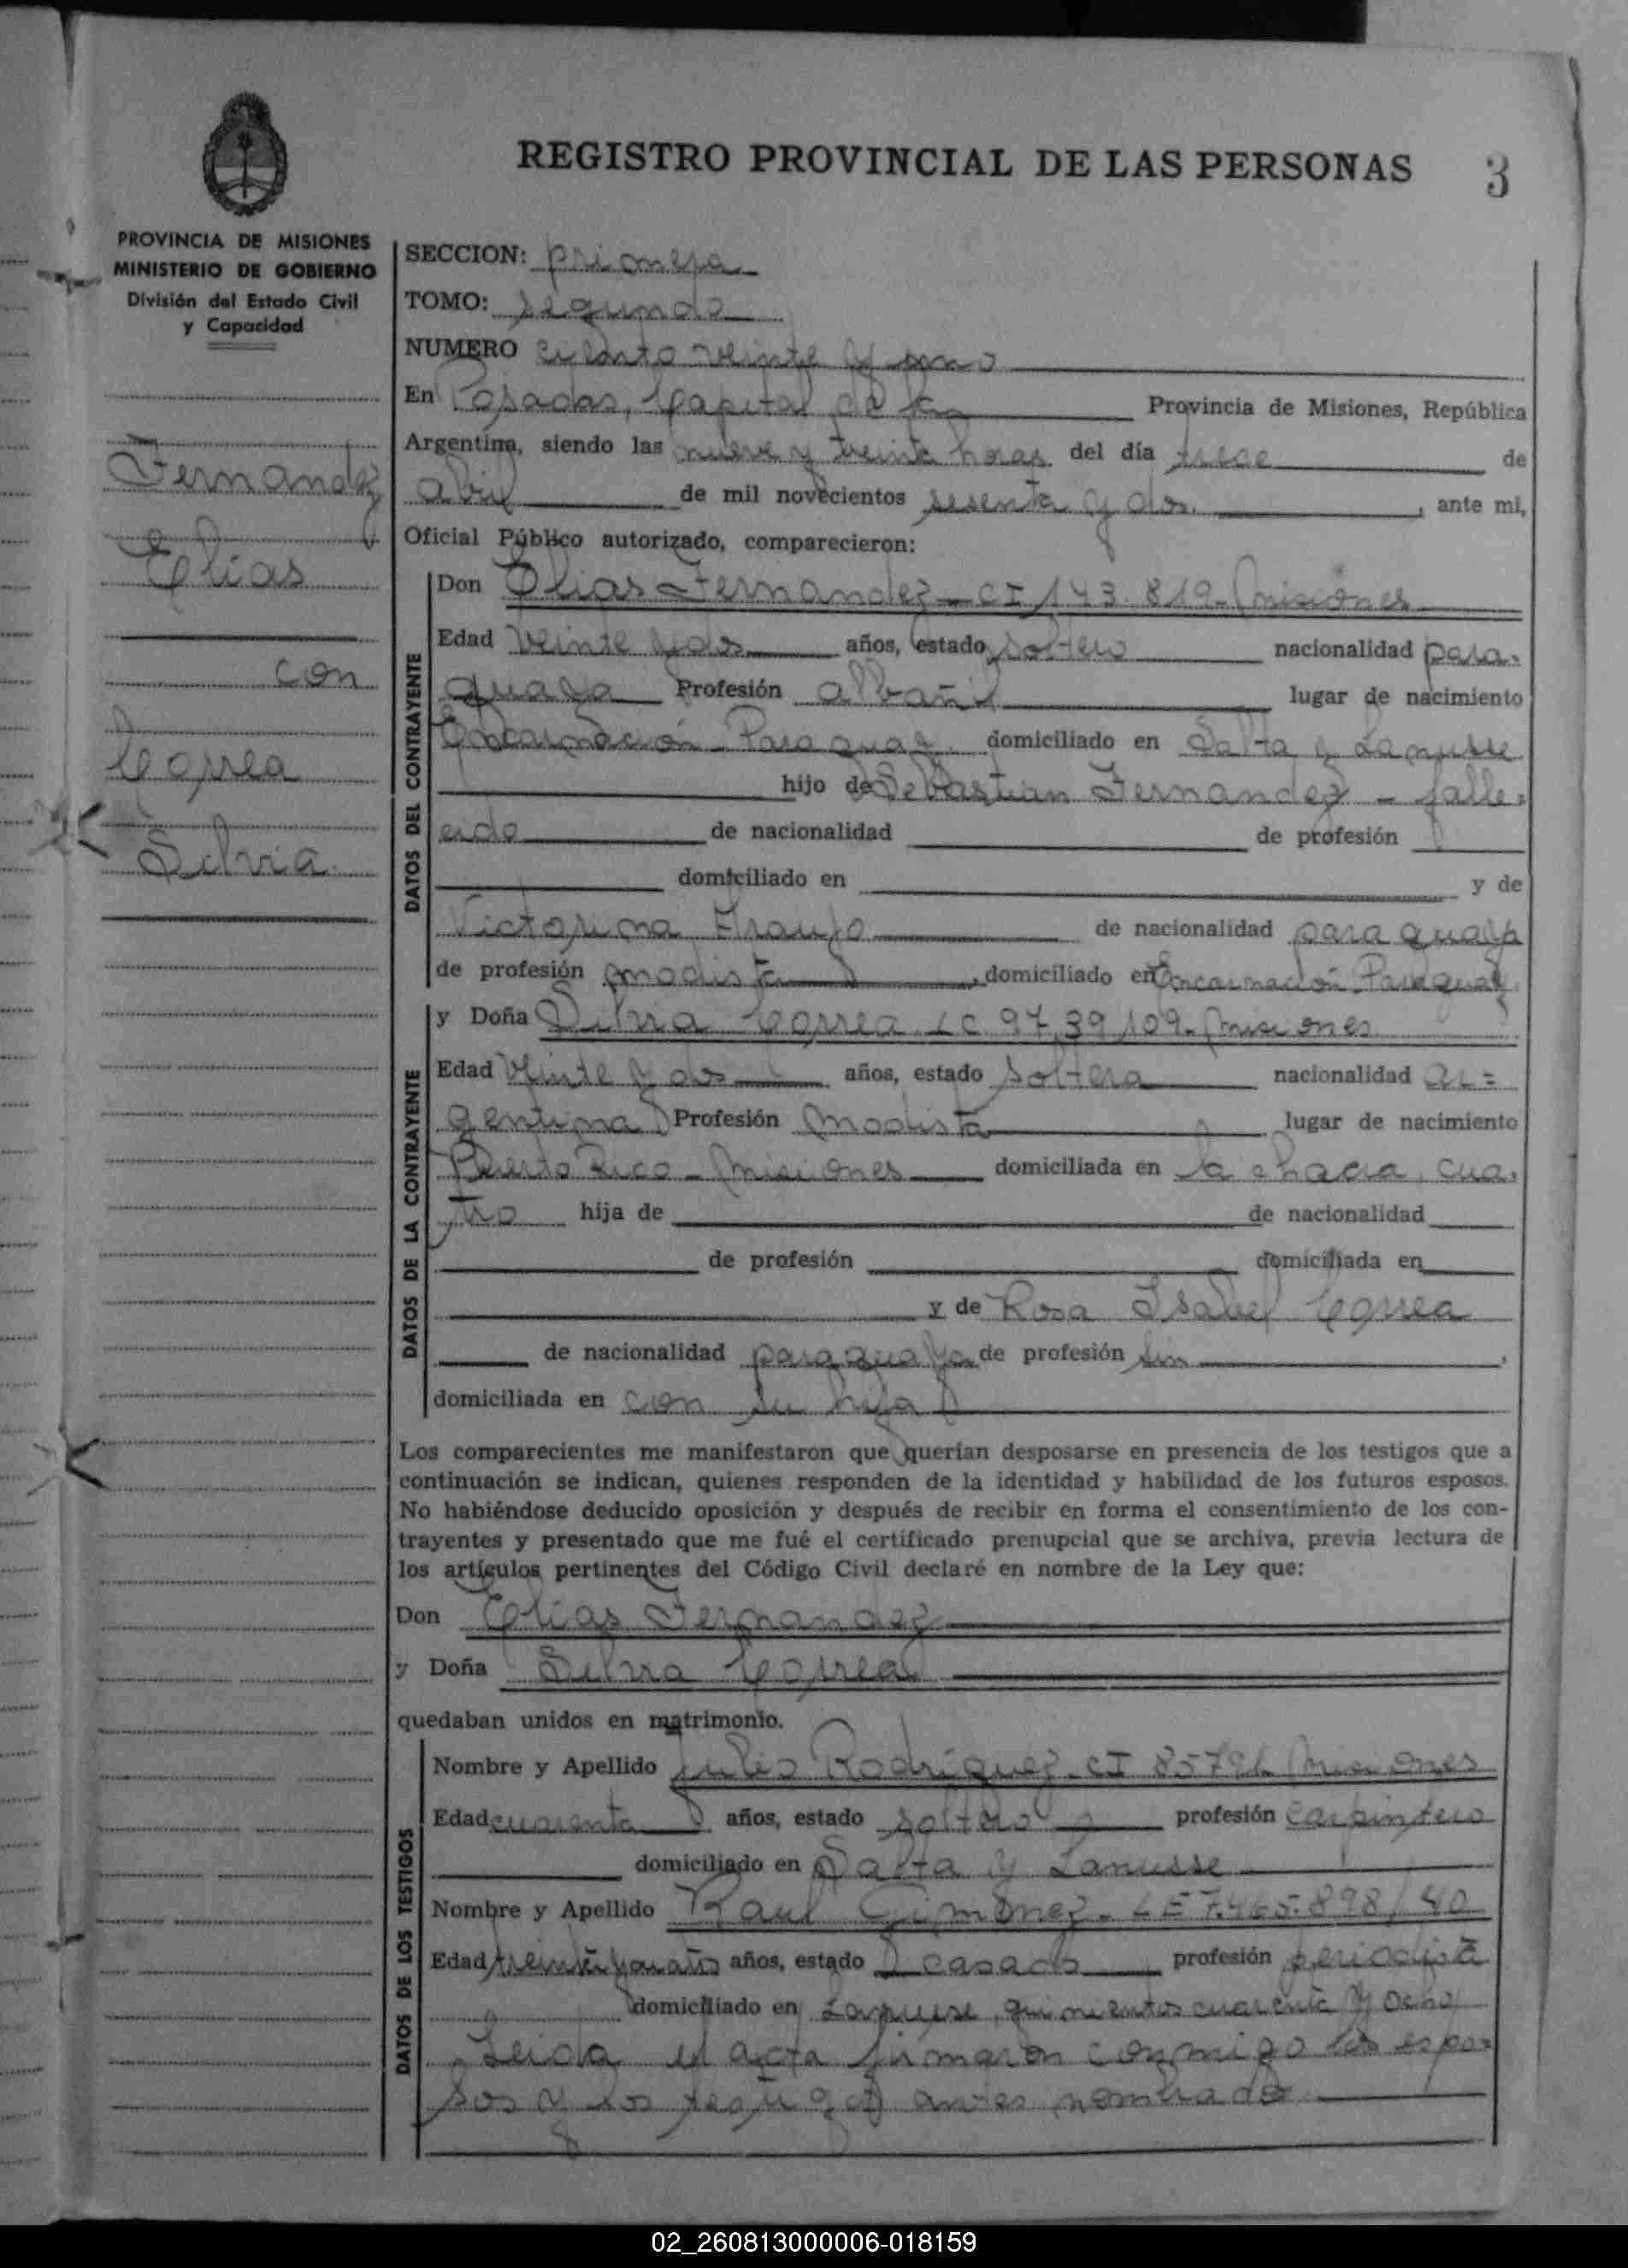 REGISTRO PROVINCIAL DE LAS PERSONAS 3
PROVINCIA DE MISIONES
MINISTERIO DE GOBIERNO
División del Estado Civil
y Capacidad
Fernandez
Elias
con
Correa
Silvia
SECCION: primera
TOMO: segundo
NUMERO ciento veinte y uno
En Posadas, Capital de la Provincia de Misiones, República
Argentina, siendo las nueve y treinta horas del día trece de
abril de mil novecientos sesenta y dos , ante mi,
Oficial Público autorizado, comparecieron:
DATOS DEL CONTRAYENTE
Don Elias Fernandez - CI 143.819 - Misiones
Edad veinte y dos años, estado soltero nacionalidad para-
guaya Profesión albañil lugar de nacimiento
Encarnación - Paraguay domiciliado en Salta y Lanusse
hijo de Sebastian Fernandez - falle-
cido de nacionalidad de profesión
domiciliado en y de
Victorina Araujo de nacionalidad paraguaya
de profesión modista , domiciliado en Encarnación - Paraguay
DATOS DE LA CONTRAYENTE
y Doña Silvia Correa LC 9739109 - Misiones
Edad veinte y dos años, estado soltera nacionalidad ar=
gentina Profesión modista lugar de nacimiento
Puerto Rico - Misiones domiciliada en la chacra cua-
tro hija de de nacionalidad
de profesión domiciliada en
y de Rosa Isabel Correa
de nacionalidad paraguaya de profesión sin ,
domiciliada en con su hija
Los comparecientes me manifestaron que querían desposarse en presencia de los testigos que a
continuación se indican, quienes responden de la identidad y habilidad de los futuros esposos.
No habiéndose deducido oposición y después de recibir en forma el consentimiento de los con-
trayentes y presentado que me fué el certificado prenupcial que se archiva, previa lectura de
los artículos pertinentes del Código Civil declaré en nombre de la Ley que:
Don Elias Fernandez
y Doña Silvia Correa
quedaban unidos en matrimonio.
DATOS DE LOS TESTIGOS
Nombre y Apellido Julio Rodríguez - CI Misiones
Edad cuarenta años, estado soltero profesión carpintero
domiciliado en Salta y Lanusse
Nombre y Apellido Raul Gimenez - LE 7.465.898/40
Edad treinta y cuatro años, estado casado profesión periodista
domiciliado en Lanusse, quinientos cuarenta y ocho
Leida el acta firmaron conmigo los espo=
sos y los testigos antes nombrado
02_260813000006-018159